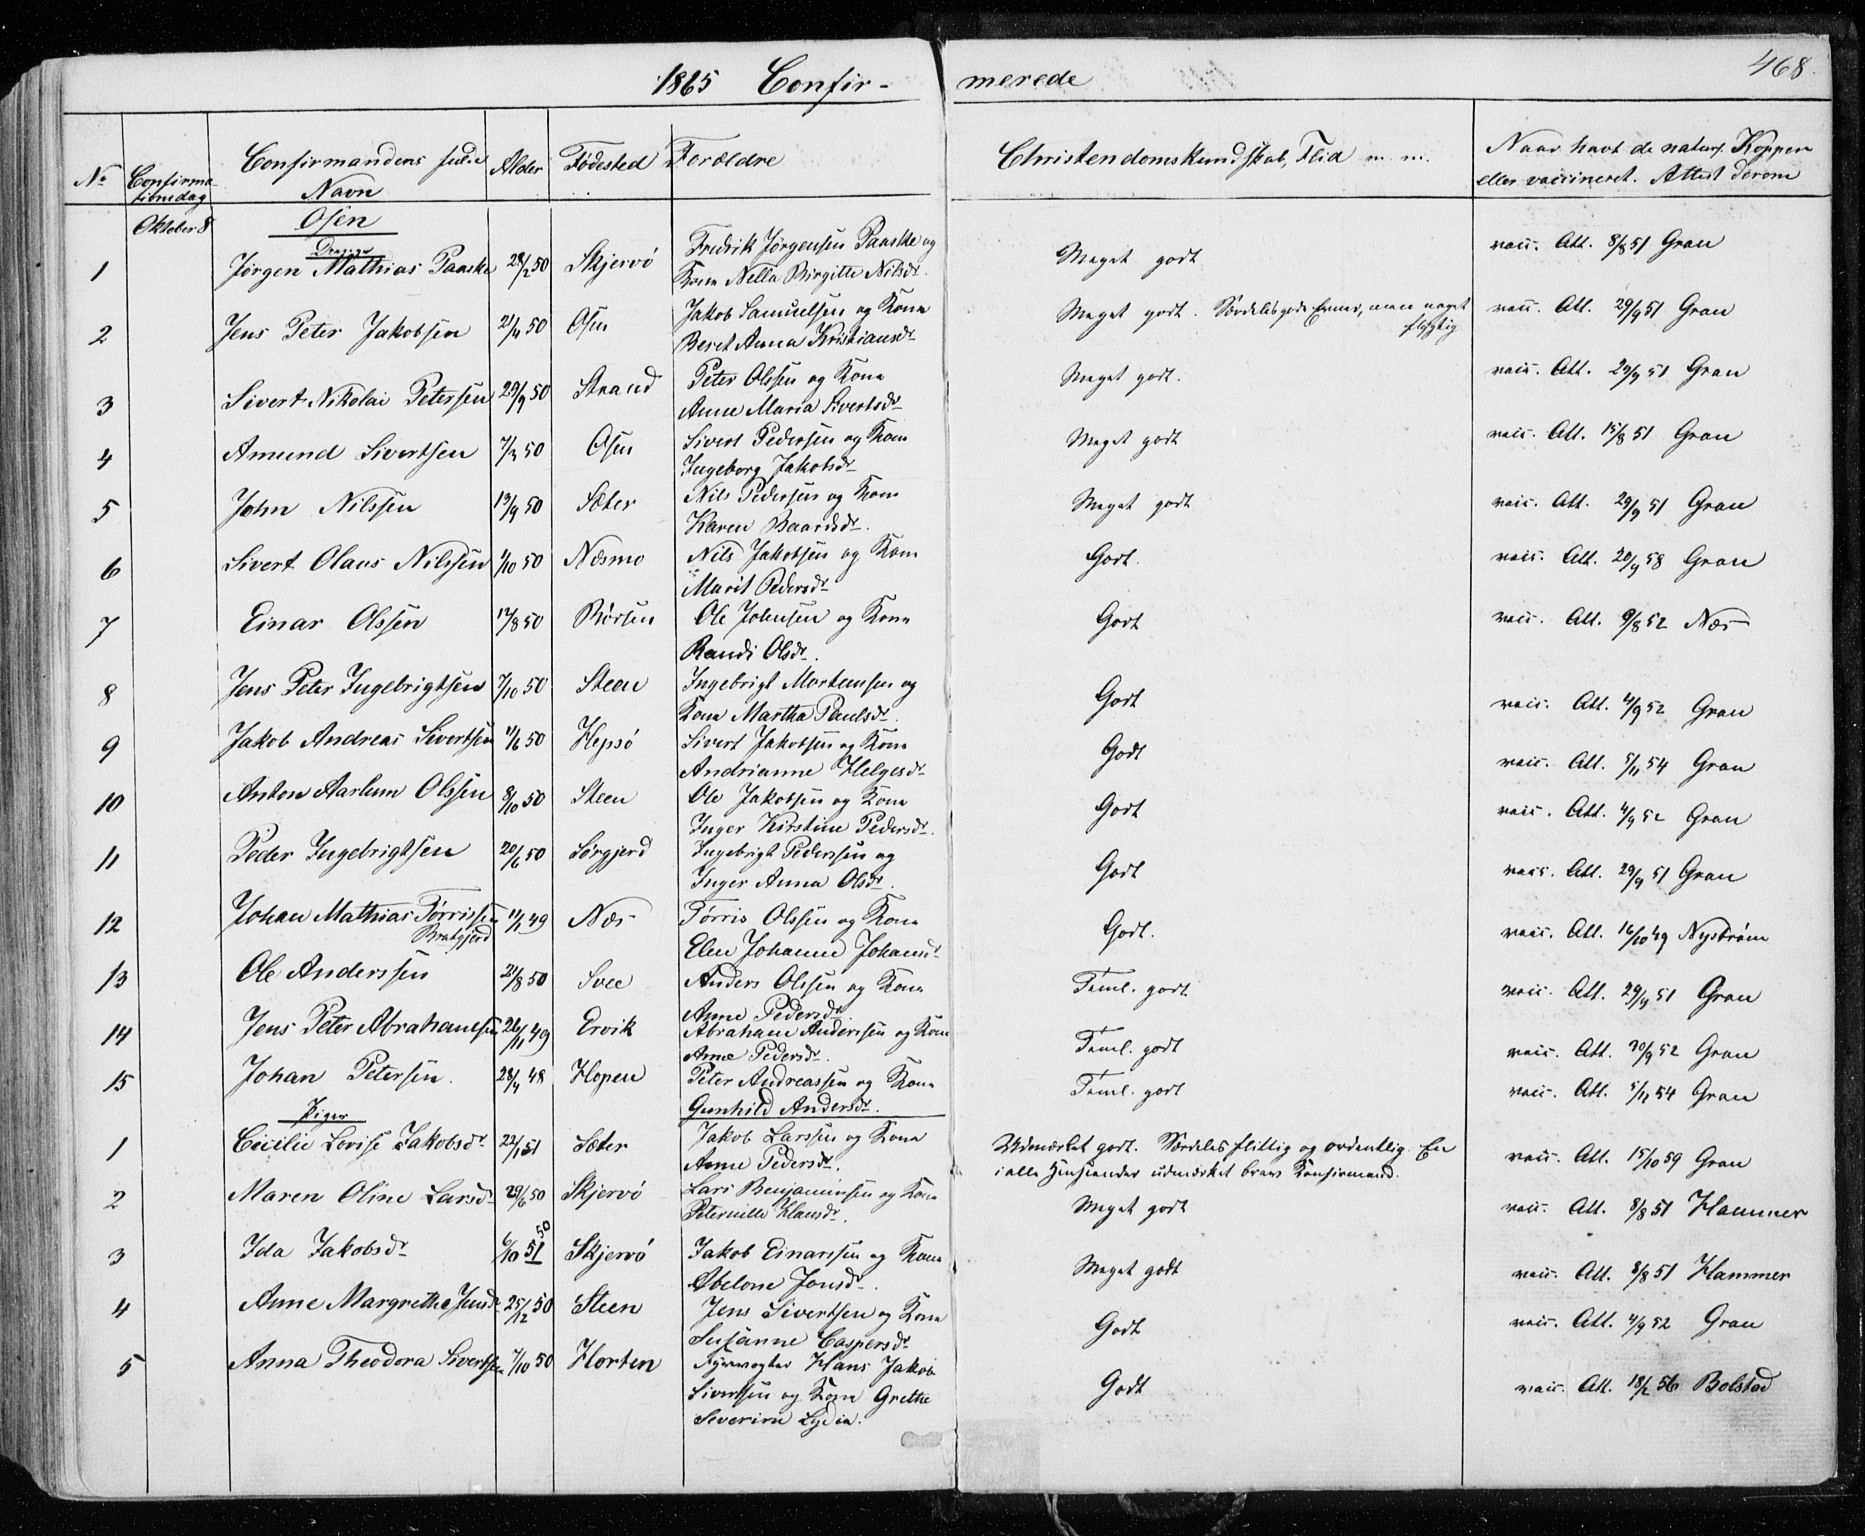 468.
1865 Confir- merede
No Confirma- tionsdag Confirmandens fulde Navn Alder Fødested Forældre Christendomskundskab, Flid m. m. Naar havt de naturl. Kopper
eller vaccineret. Attest derom
Oktober 8 Osen
Drenge
1 Jørgen Mathias Paaske 28/2 50 Skjervö Fredrik Jørgensen Paaske og Meget godt vacc. Att. 8/8 51 Gran
Kone Nella Birgitte Nilsdr.
2 Jens Peter Jakobsen 21/4 50 Osen Jakob Samuelsen og Kone Meget godt. Særdeles gode Evner, men noget vacc. Att. 29/9 51 Gran
Beret Anna Kristiansdr flygtig
3 Sivert Nikolai Petersen 29/9 50 Strand Peter Olsen og Kone Meget godt. vacc. Att. 29/9 51 Gran
Anne Maria Sivertsdr
4 Amund Sivertsen 7/3 50 Osen Sivert Pedersen og Kone Meget godt vacc. Att. 15/8 51 Gran
Ingeborg Jakobsdr
5 John Nilssen 19/9 50 Sæter Nils Pedersen og Kone Meget godt vacc. Att. 29/9 51 Gran
Karen Baardsdr.
6 Sivert Olaus Nilssen 1/10 50 Næsmo Nils Jakobsen og Kone Godt. vacc. Att. 20/9 58 Gran
Marit Pedersdr
7 Einar Olssen 17/8 50 Börsen Ole Johnsen og Kone Godt vacc. Att. 9/8 52 Næs
Randi Olsdr.
8 Jens Peter Ingebrigtsen 7/10 50 Steen Ingebrigt Mortensen og Godt vacc. Att. 4/9 52 Gran
Kone Martha Paulsdr.
9 Jakob Andreas Sivertsen 11/6 50 Hepsö Sivert Jakobsen og Kone Godt vacc. Att. 5/11 54 Gran
Andrianne Helgesdr
10 Anton Aarlum Olssen 8/10 50 Steen Ole Jakobsen og Kone Godt vacc. Att. 4/9 52 Gran
Inger Kirstine Pedersdr.
11 Peder Ingebrigtsen 20/6 50 Sørgjerd Ingebrigt Pedersen og Godt vacc. Att. 29/9 51 Gran
Inger Anna Olsdr.
12 Johan Mathias Tørrissen 11/1 49 Næs Tørris Olssen og Kone Godt. vacc. Att. 16/10 49 Nysbrøm
Bratgjerd Elen Johanne Johansdr
13 Ole Anderssen 21/8 50 Svee Anders Olssen og Kone Teml. godt vacc. Att. 29/9 51 Gran
Anne Pedersdr.
14 Jens Peter Abrahamsen 26/11 49 Ervik Abraham Anderssen og Kone Teml. godt vacc. Att. 30/9 52 Gran
Anne Pedersdr.
15 Johan Petersen. 28/4 48 Hopen Peter Andreassen og Kone Teml. godt vacc. Att. 5/11 54 Gran
Gunhild Andersdr.
Piger
1 Cecilie Lovise Jakobsdr 22/1 51 Sæter Jakob Larssen og Kone Udmærket godt. Særdeles flittig og ordentlig. En vacc. Att. 15/10 59 Gran
Anne Pedersdr. i alle Henseender udmærket brav Konfirmand.
2 Maren Oline Larsdr 29/6 50 Skjervö Lars Benjaminsen og Kone Meget godt vacc. Att. 8/8 51 Hammer
Peternille Klausdr.
50
3 Ida Jakobsdr 6/10 51 Skjervö Jakob Einarssen og Kone Meget godt vacc. Att. 8/8 51 Hammer
Abelone Jonsdr.
4 Anne Margrethe Jensdr 25/12 50 Steen Jens Sivertsen og Kone Godt vacc. Att. 4/9 52 Gran
Susanne Caspersdr
5 Anna Theodora Sivertsen 7/10 50 Horten Fyrvogter Hans Jakob Godt vacc. Att. 18/2 56 Bolstad
Sivertsen og Kone Grethe
Severine Lydia.